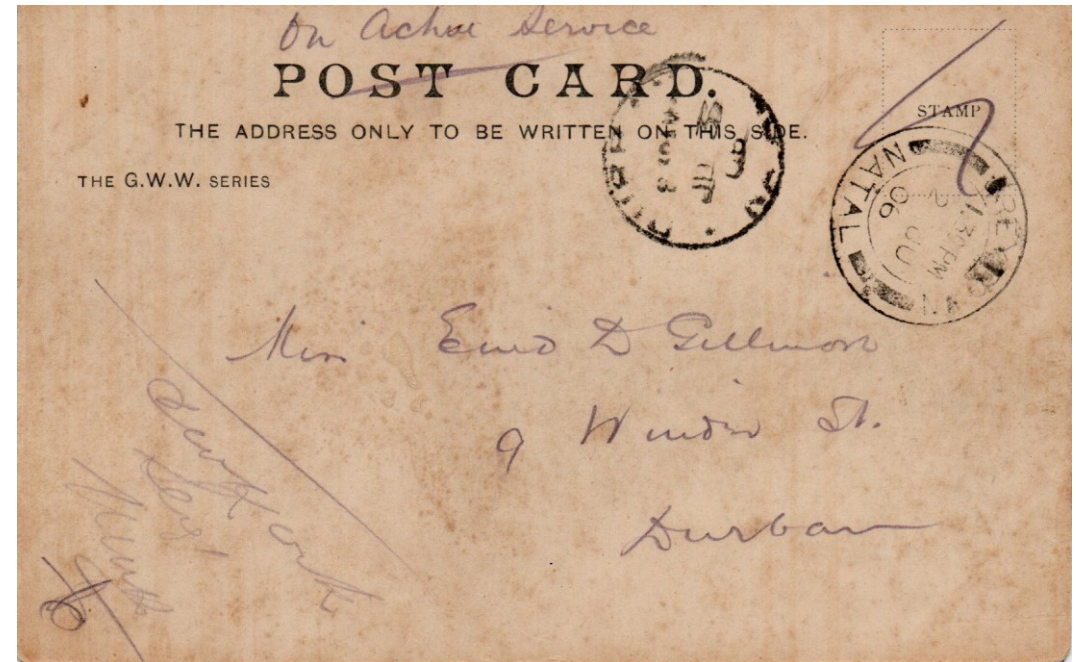 On Active Service
POST CARD.
STAMP
THE ADDRESS ONLY TO BE WRITTEN ON THIS SIDE.
THE G.W.W. SERIES
NATAL
06
1.30 PM
Miss Enid D Gillmore
9 Winder St.
Durban